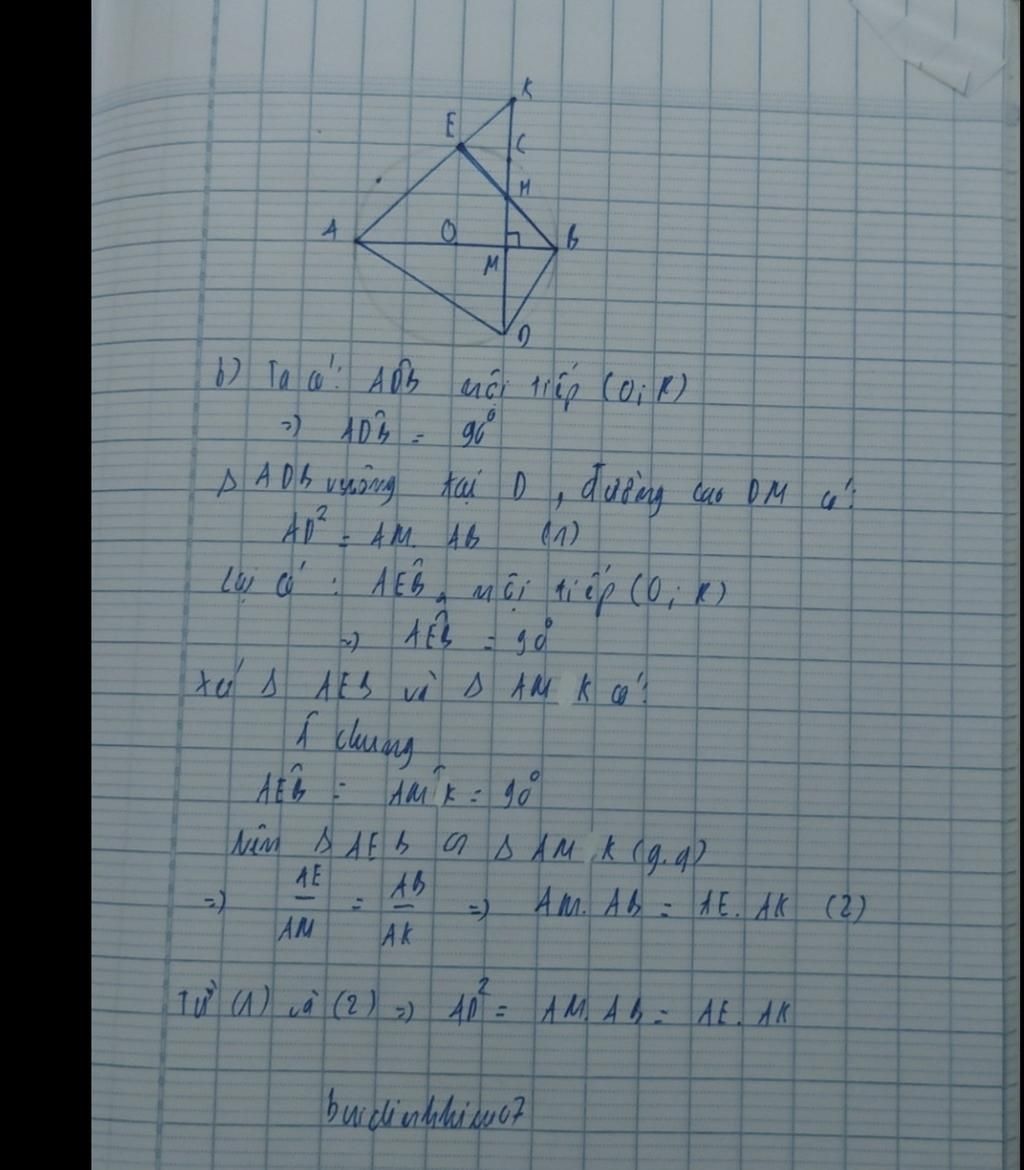 K
E
C
H
A
O
B
M
D
b) Ta có: AD̂B nội tiếp (O; R)
=> AD̂B = 90°
Δ ADB vuông tại D, đường cao DM có:
AD² = AM. AB (1)
Lại có: AÊB nội tiếp (O; R)
=> AÊB = 90°
Xét Δ AEB và Δ AMK có:
Â chung
AÊB = AM̂K = 90°
Nên Δ AEB ∽ Δ AMK (g.g)
=> AE/AM = AB/AK => AM. AB = AE. AK (2)
Từ (1) và (2) => AD² = AM. AB = AE. AK